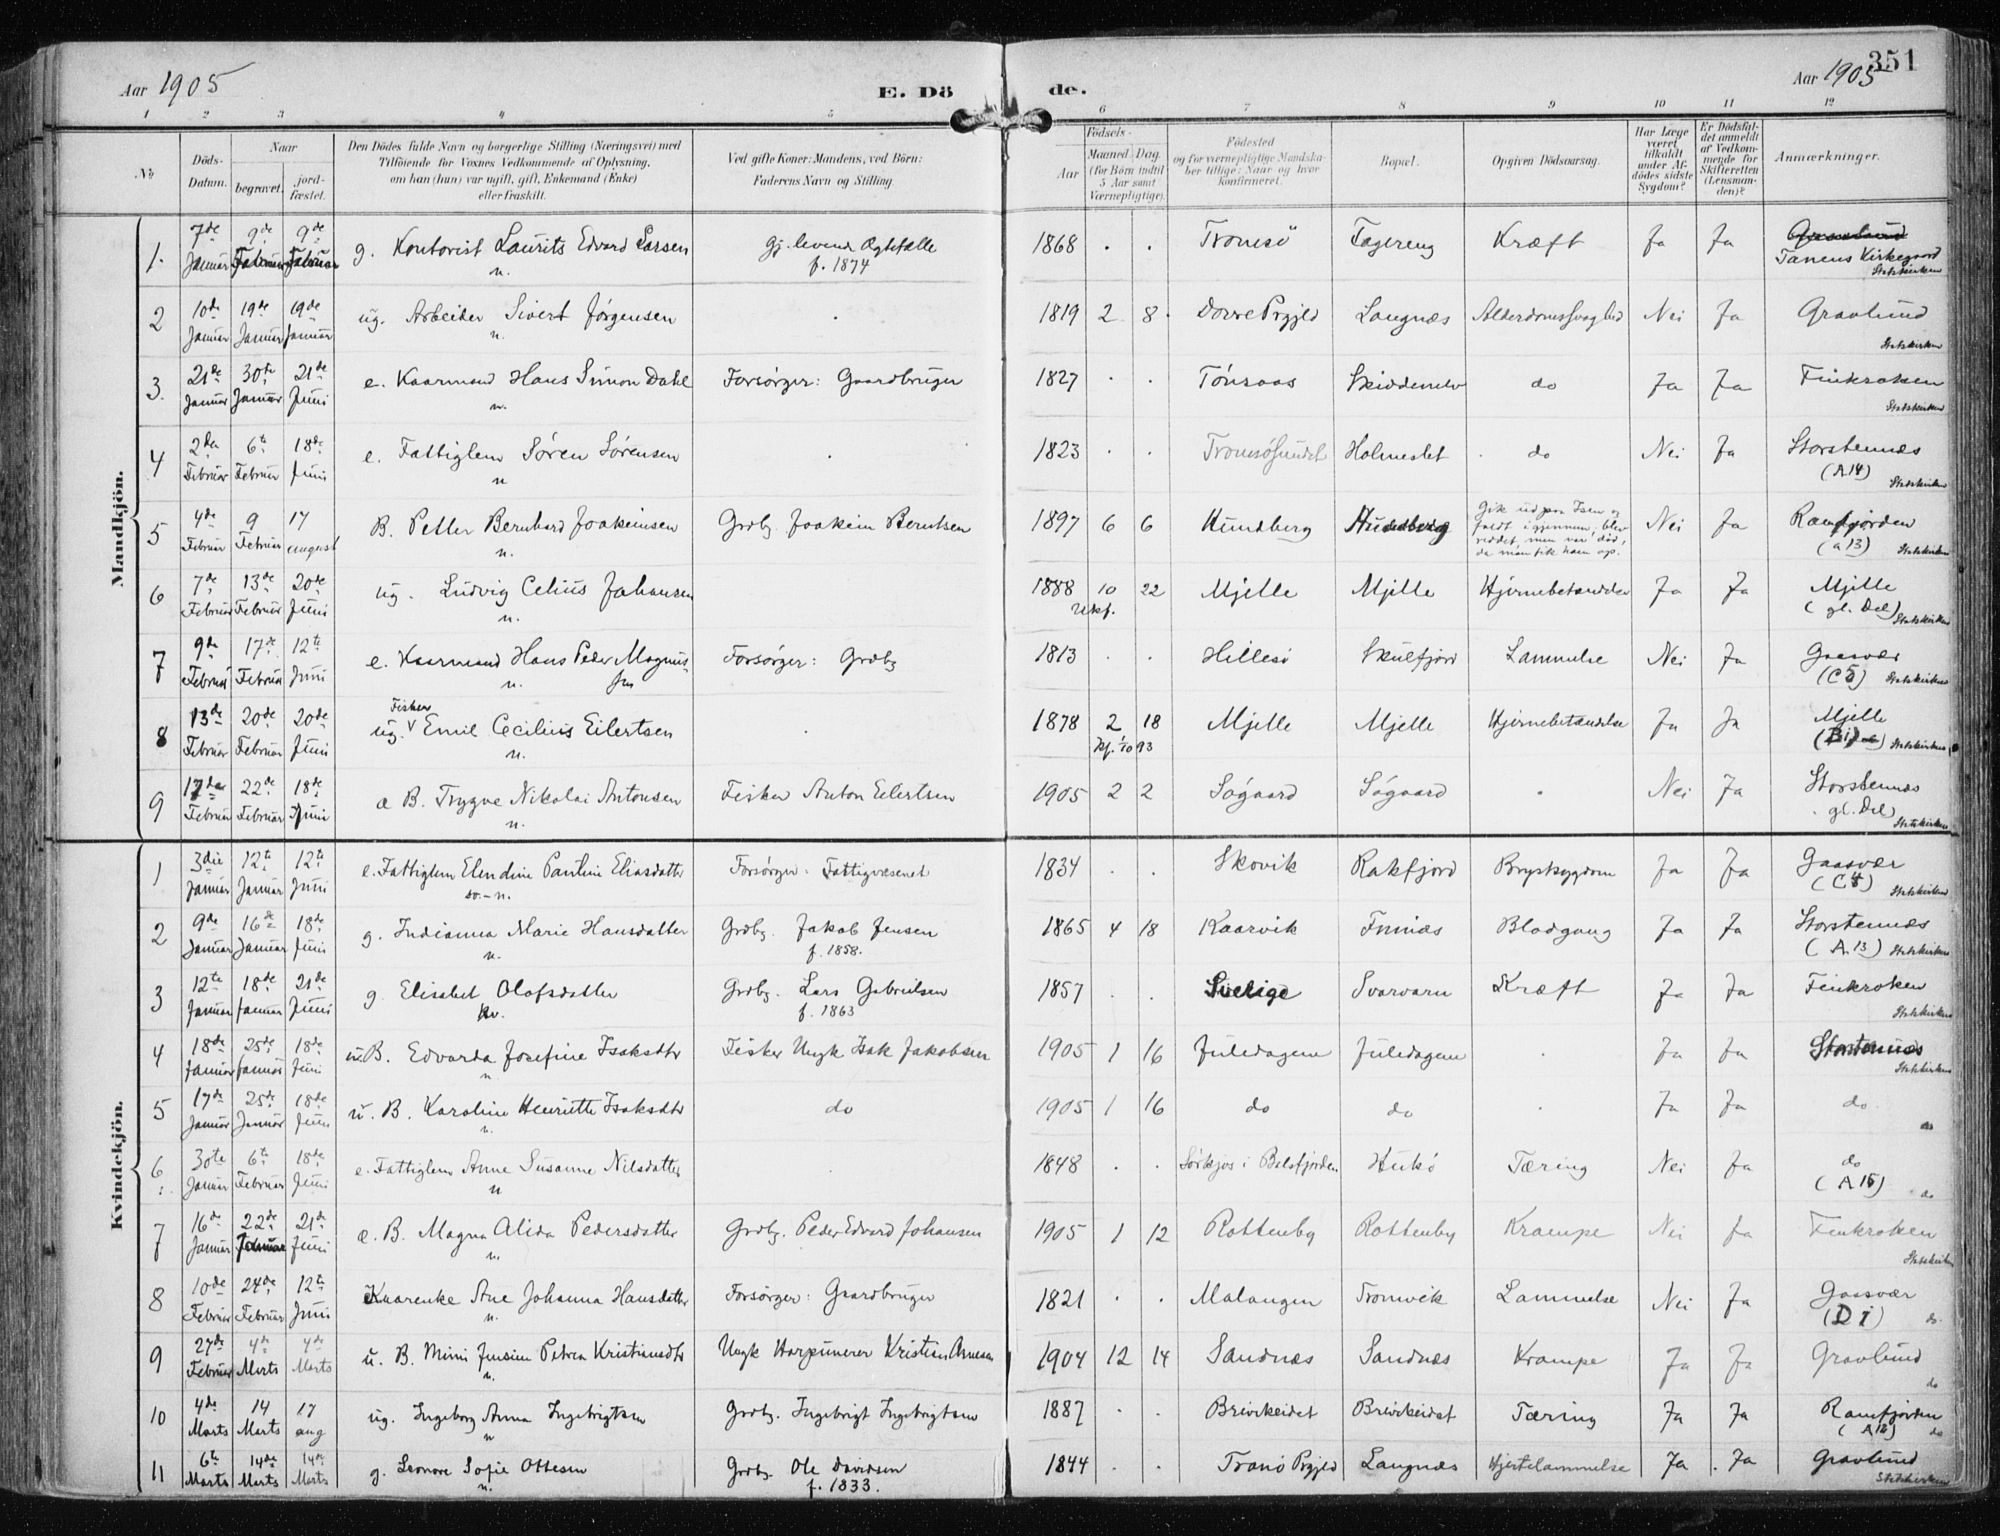 Aar 1905 E. Dö de. Aar 1905 351
1 2 3 4 5 6 7 8 9 10 11 12
No Döds-Datum. Naar begravet. jord-fæstet. Den Dödes fulde Navn og borgerlige Stilling (Næringsvei) med Tilföiende for Voxnes Vedkommende af Oplysning, om han (hun) var ugift, gift, Enkemand (Enke) eller fraskilt. Ved gifte Koner: Mandens, ved Börn: Faderens Navn og Stilling. Födsels- Aar Maaned. Dag. (for Börn indtil 5 Aar samt Værnepligtige). Födested og for værnepligtige Mandskaber tillige: Naar og hvor konfirmeret. Bopæl. Opgiven Dödsaarsag. Har Læge været tilkaldt under Afdödes sidste Sygdom? Er Dödsfaldet anmeldt af Vedkommende for Skifteretten (Lensmanden)? Anmærkninger.
Mandkjön.
1. 7de Januar 9de Februar 9de Februar g. Kontorist Laurits Edvard Larsen n. Gj. levende Ægtefælle f. 1874 1868 . . Tromsö Fagereng Kræft Ja Ja Gravlund Tanens Kirkegaard Statskirken
2 10de Januar 19de Januar 19de Januar ug. Arbeider Sivert Jørgensen n. . 1819 2 8 Dovre Prgjld Langnæs Alderdomssvaghed Nei Ja Gravlund Statskirken
3. 21de Januar 30te Januar 21de Juni e. Kaarmand Hans Simon Dahl n. Forsørger: Gaardbruger 1827 . . Tönsaas Skiddenelv do Ja Ja Finkroken Statskirken
4 2den Februar 6te Februar 18de Juni e. Fattiglem Søren Sørensen n . 1823 . . Tromsösundet Holmeslet do Nei Ja Storstennæs (A14) Statskirken
5 4de Februar 9 Februar 17 august B. Petter Bernhard Joakimsen n. Grdbg. Joakim Berntsen 1897 6 6 Hundberg Hundberg Gik ud paa Isen og faldt igjennem, blev reddet, men var død, da man fik ham op. Nei Ja Ramfjorden (a 13) Statskirken
6 7de Februar 13de Februar 20de Juni ug. Ludvig Celius Johansen n. 1888 10 22 Ukf. Mjelle Mjelle Ja Ja Mjelle (gl. Del) Statskirken
7 9de Februar 17de Februar 12te Juni e. Kaarmand Hans Peder Magnussen n. Forsørger: Grdbg 1813 . . Hillesö Skulfjord Lammelse Nei Ja Gaasvær Statskirken
8 13de Februar 20de Februar 20de Juni ug. Fisker Emil Cecilius Eilertsen n. . 1878 2 18 Kf. 1/10 93 Mjelle Mjelle Hjernebetændelse Ja Ja Mjelle Statskirken
9 17den Februar 22de Februar 18de Juni æ B. Trygve Nikolai Antonsen n. Fisker Anton Eilertsen 1905 2 2 Søgaard Søgaard . Nei Ja Storstennæs gl. Del Statskirken
Kvindekjön.
1 3die Januar 12te Januar 12te Juni e. Fattiglem Elendine Pauline Eliasdatter so.-n. Forsørger: Fattigvæsenet 1834 . . Skovik Rakfjord Brystsygdom Ja Ja Gaasvær Statskirken
2 9de Januar 16de Januar 18de Juni g. Indianna Marie Hansdatter n. Grdbg. Jakob Jensen f. 1858. 1865 4 18 Kaarvik Finnæs Blodgang Ja Ja Storstennæs (A.13) Statskirken
3 12te Januar 18de Januar 21de Juni g. Elisabet Olafsdatter kv. Grdbg. Lars Gabrielsen f. 1863 1857 . . Sverige Svarvarn Kræft Ja Ja Finkroken Statskirken
4 18de Januar 25de Januar 18de Juni u.B. Edvarda Josefine Isaksdtr n Fisker Ungk Isak Jakobsen 1905 1 16 Juledagene Juledagene . Ja Ja Storstennæs Statskirken
5 17de Januar 25de Januar 18de Juni u. B. Karoline Henriette Isaksdtr n. do 1905 1 16 do do . Ja Ja do do
6 30te Januar 6te Februar 18de Juni e. Fattiglem Anne Susanne Nilsdatter n . 1848 . . Sørkjos i Balsfjorden Hukö Tæring Nei Ja do (A 15) do
7 16de Januar 22de Februar 21de Juni æ. B. Magna Alida Pedersdatter n. Grdbg. Peder Edvard Johansen 1905 1 12 Rottenby Rottenby Krampe Nei Ja Finkroken Statskirken
8 10de Februar 24de Februar 12te Juni Kaarenke Ane Johanna Hansdatter n. Forsørger: Gaardbruger 1821 . . Malangen Tromvik Lammelse Nei Ja Gaasvær (D 1) do.
9 27de Februar 4de Marts 4de Marts u. B. Mimi Jensine Petrea Kristiansdtr n. Ungk Harpunerer Kristian Arnesen 1904 12 14 Sandnæs Sandnæs Krampe Ja Ja Gravlund do
10 4de Marts 14 Marts 17 aug ug. Ingeborg Anna Ingebrigtsen n Grdbg. Ingebrigt Ingebrigtsen 1887 . . Breivikeidet Breivikeidet Tæring Ja Ja Ramfjorden (A12) do
11 6te Marts 14de Marts 14de Marts g. Leonore Sofie Ottesen n. Grdbg. Ole Davidsen f. 1833. 1844 . . Tranö Prgjld Langnæs Hjertelammelse Ja Ja Gravlund Statskirken